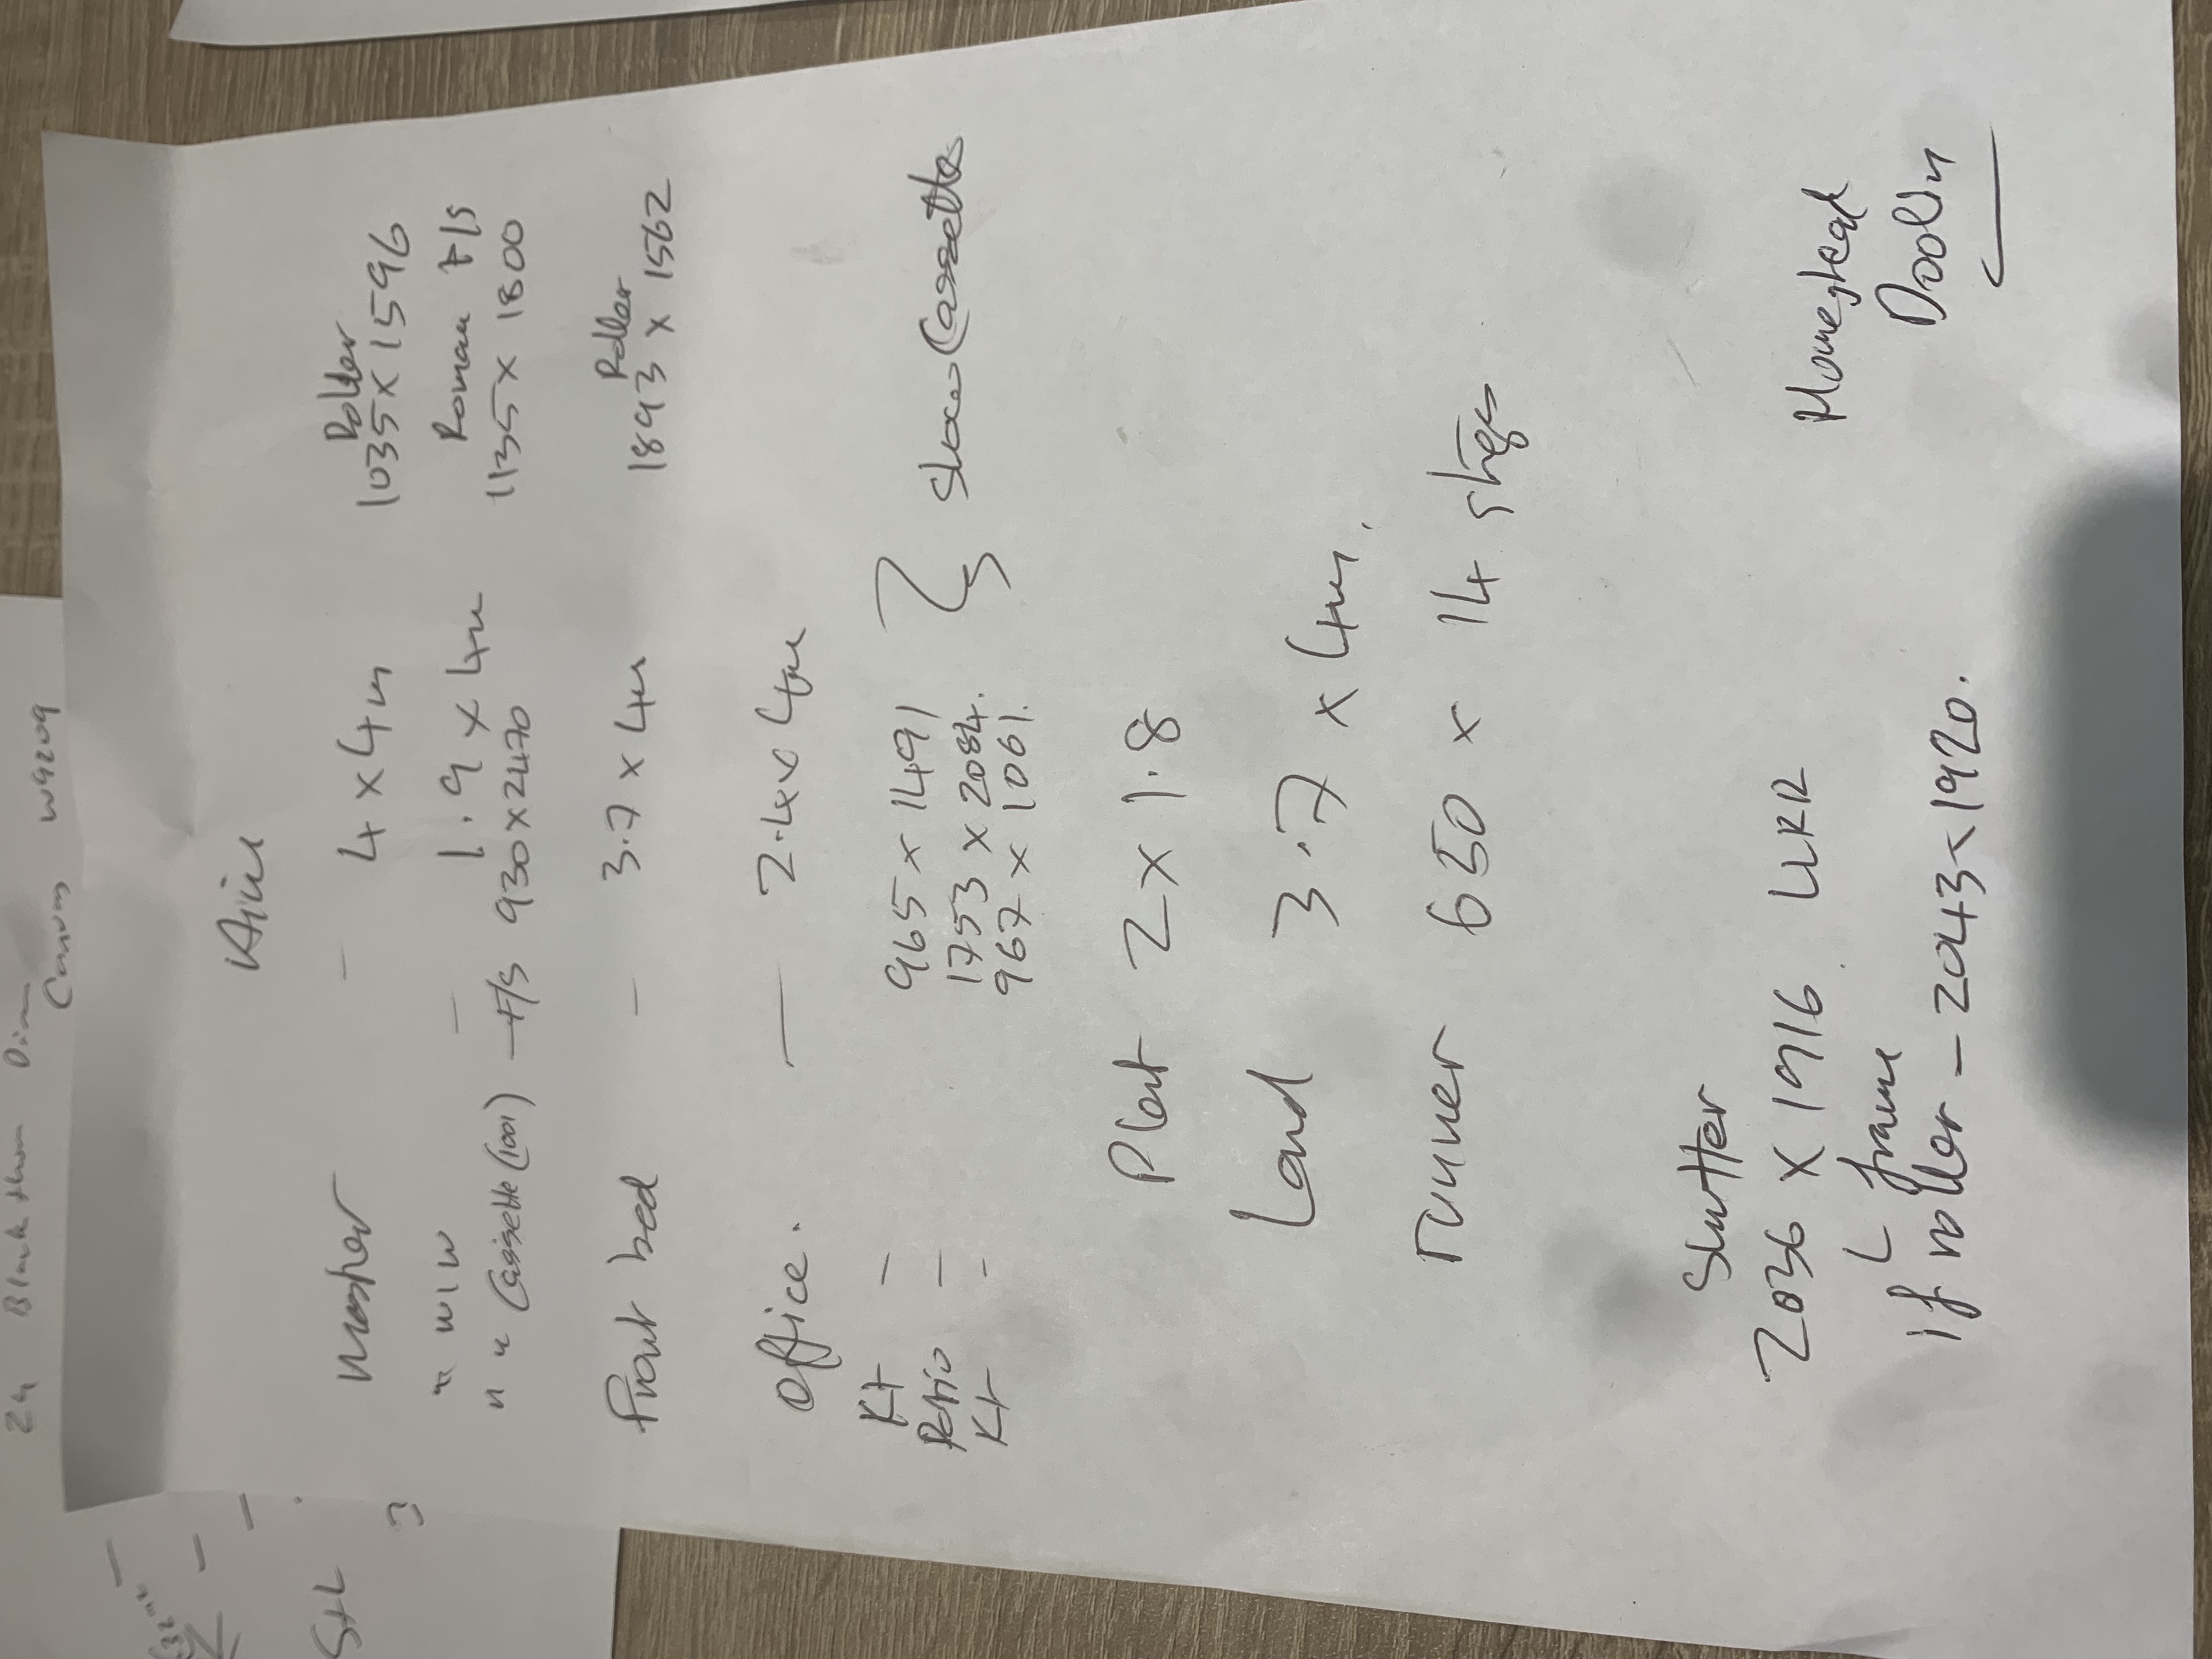 24 Blackthorn
W9209
StL
Master - 4 x 4m
Roller
1035 x 1596
" WIW - 1.9 x 4m
Roman t/s
1135 x 1800
" " Cassette (1001) - t/s 930 x 2470
Front bed - 3.7 x 4m
Roller
1893 x 1562
Office. - 2.4 x 4m
Kt - 965 x 1491
Patio - 1753 x 2084.
Kt - 967 x 1061.
Cassettes
Plat 2 x 1.8
Land 3.7 x 4m.
Runner 650 x 14 steps
Shutter
2036 x 1916 LLRR
L frame
If roller - 2043 x 1920.
Homestead
Doolin